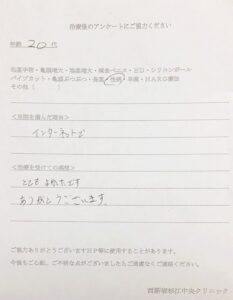 治療後のアンケートにご協力ください
年齢 20 代
包茎手術・亀頭増大・陰茎増大・埋没ペニス・ED・シリコンボール
パイプカット・亀頭ぶつぶつ・長茎・性病・早漏・HARG療法
その他( )
<当院を選んだ理由>
インターネットで
<治療を受けての感想>
とても よかったです
ありがとうございます
ご協力ありがとうございますHP等に使用することがあります。
今後もご心配、ご不明な点がございましたらご遠慮なくご連絡ください。
西新宿杉江中央クリニック